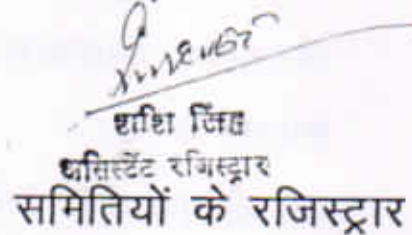 शशि सिंह
असिस्टेंट रजिस्ट्रार
समितियों के रजिस्ट्रार